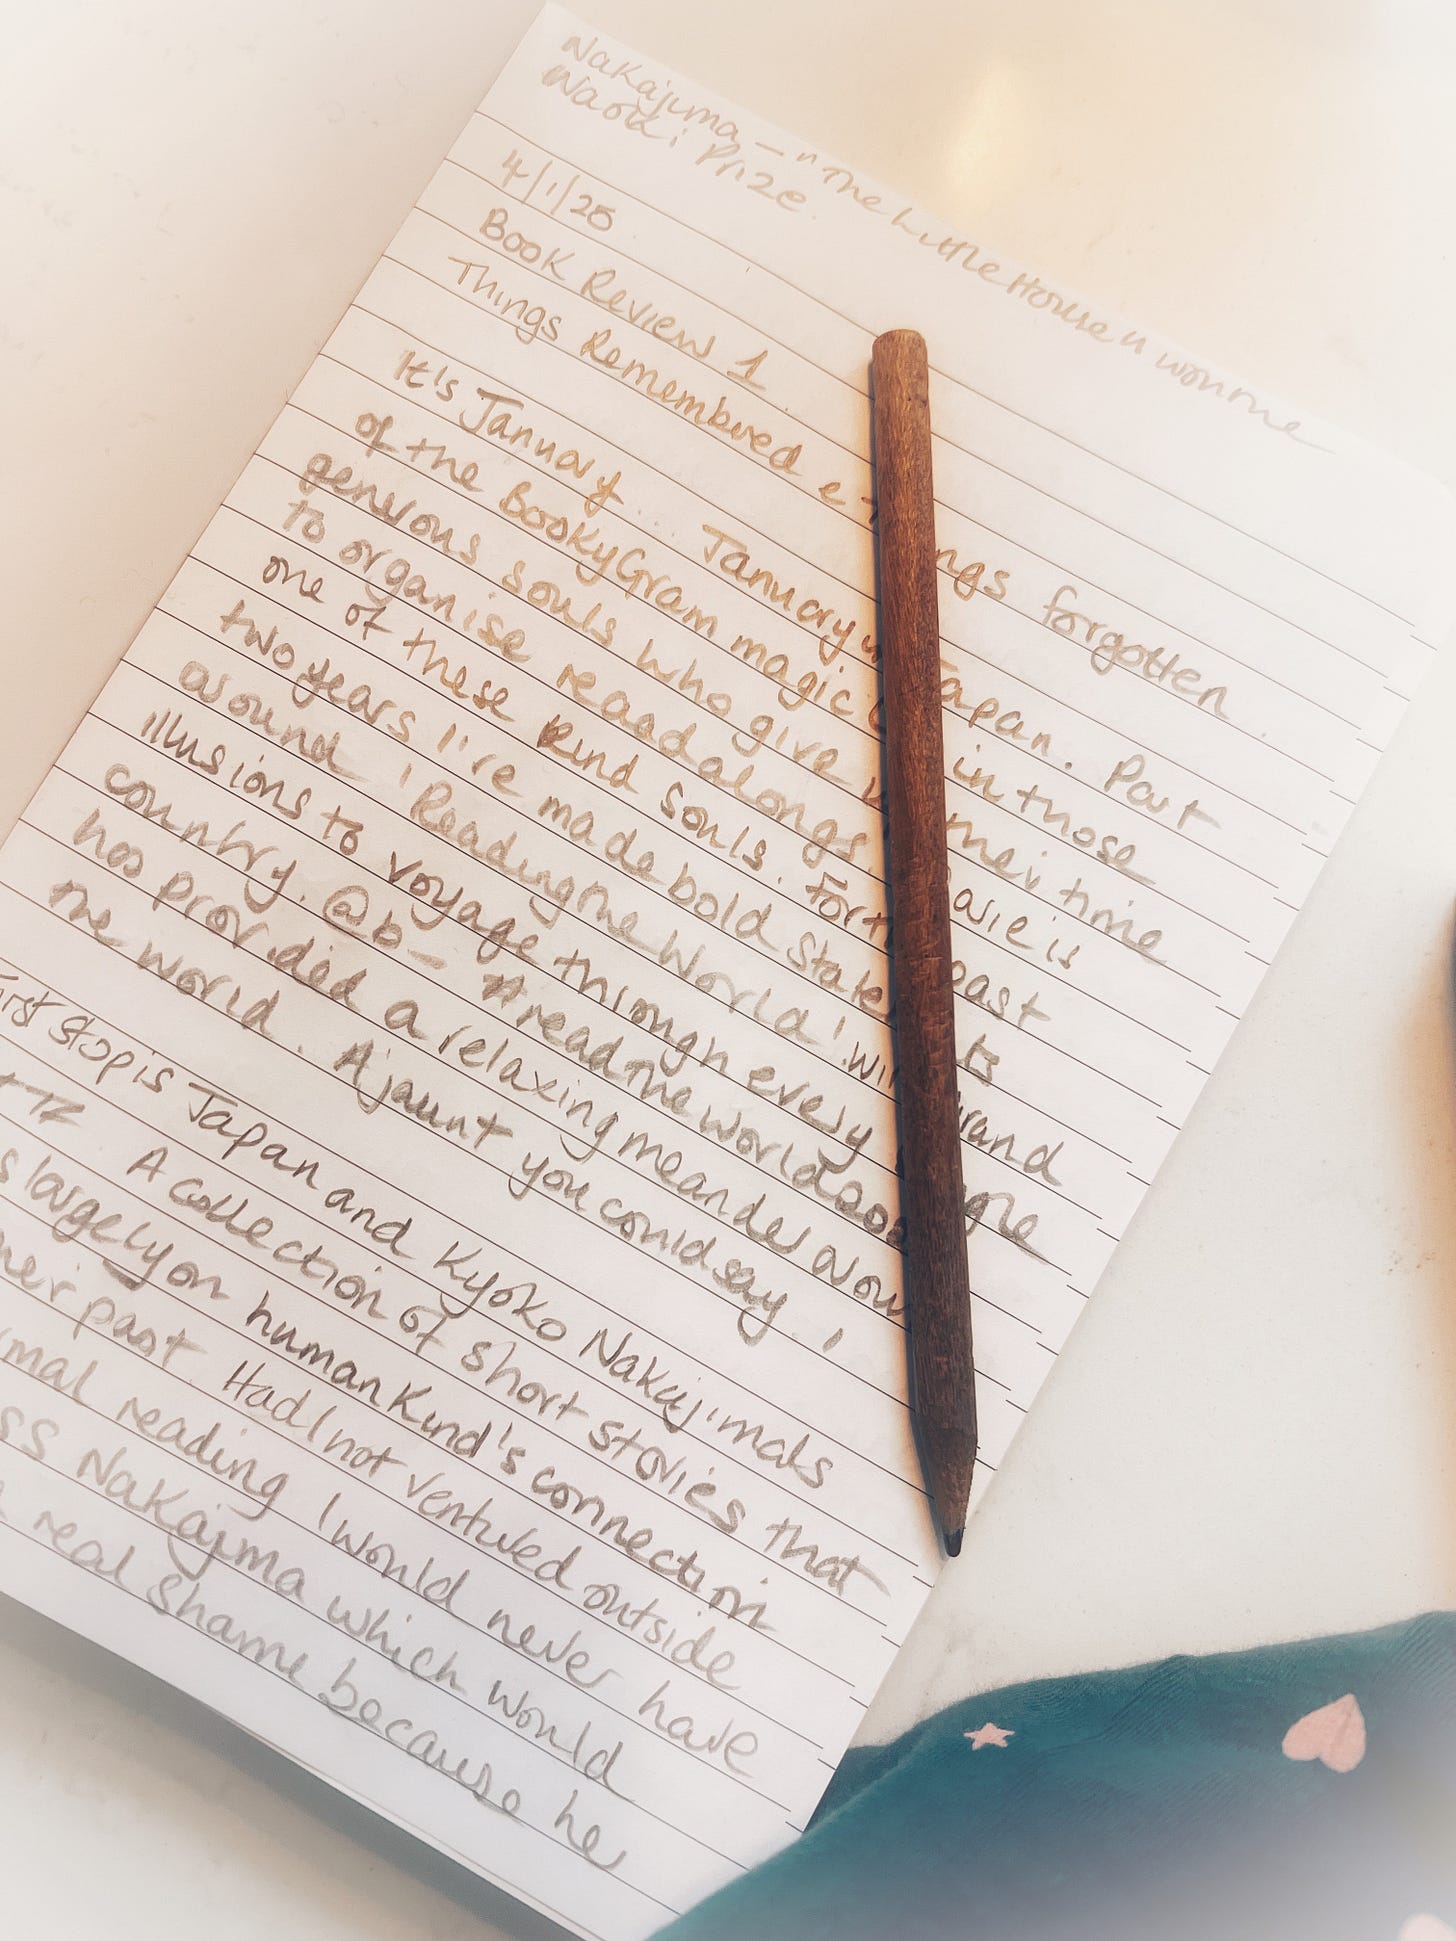 Nakajima – "The Little House" won the
Naoki Prize.
4/1/25.
Book Review 1
Things Remembered & Things forgotten.
It's January... January in Japan. Part
of the BookyGram magic in those
generous souls who give their time
to organise readalongs. is
one of these kind souls. For past
two years I've made bold state
around 'Reading the World' with grand
illusions to voyage through every
country. @b- #readtheworld
has provided a relaxing meander arou
the world. A jaunt you could say. I
first stop is Japan and Kyoko Nakajima's
A collection of short stories that
largely on humankind's connection
their past. Had I not ventured outside
reading I would never have
Nakajima which would
real shame because he